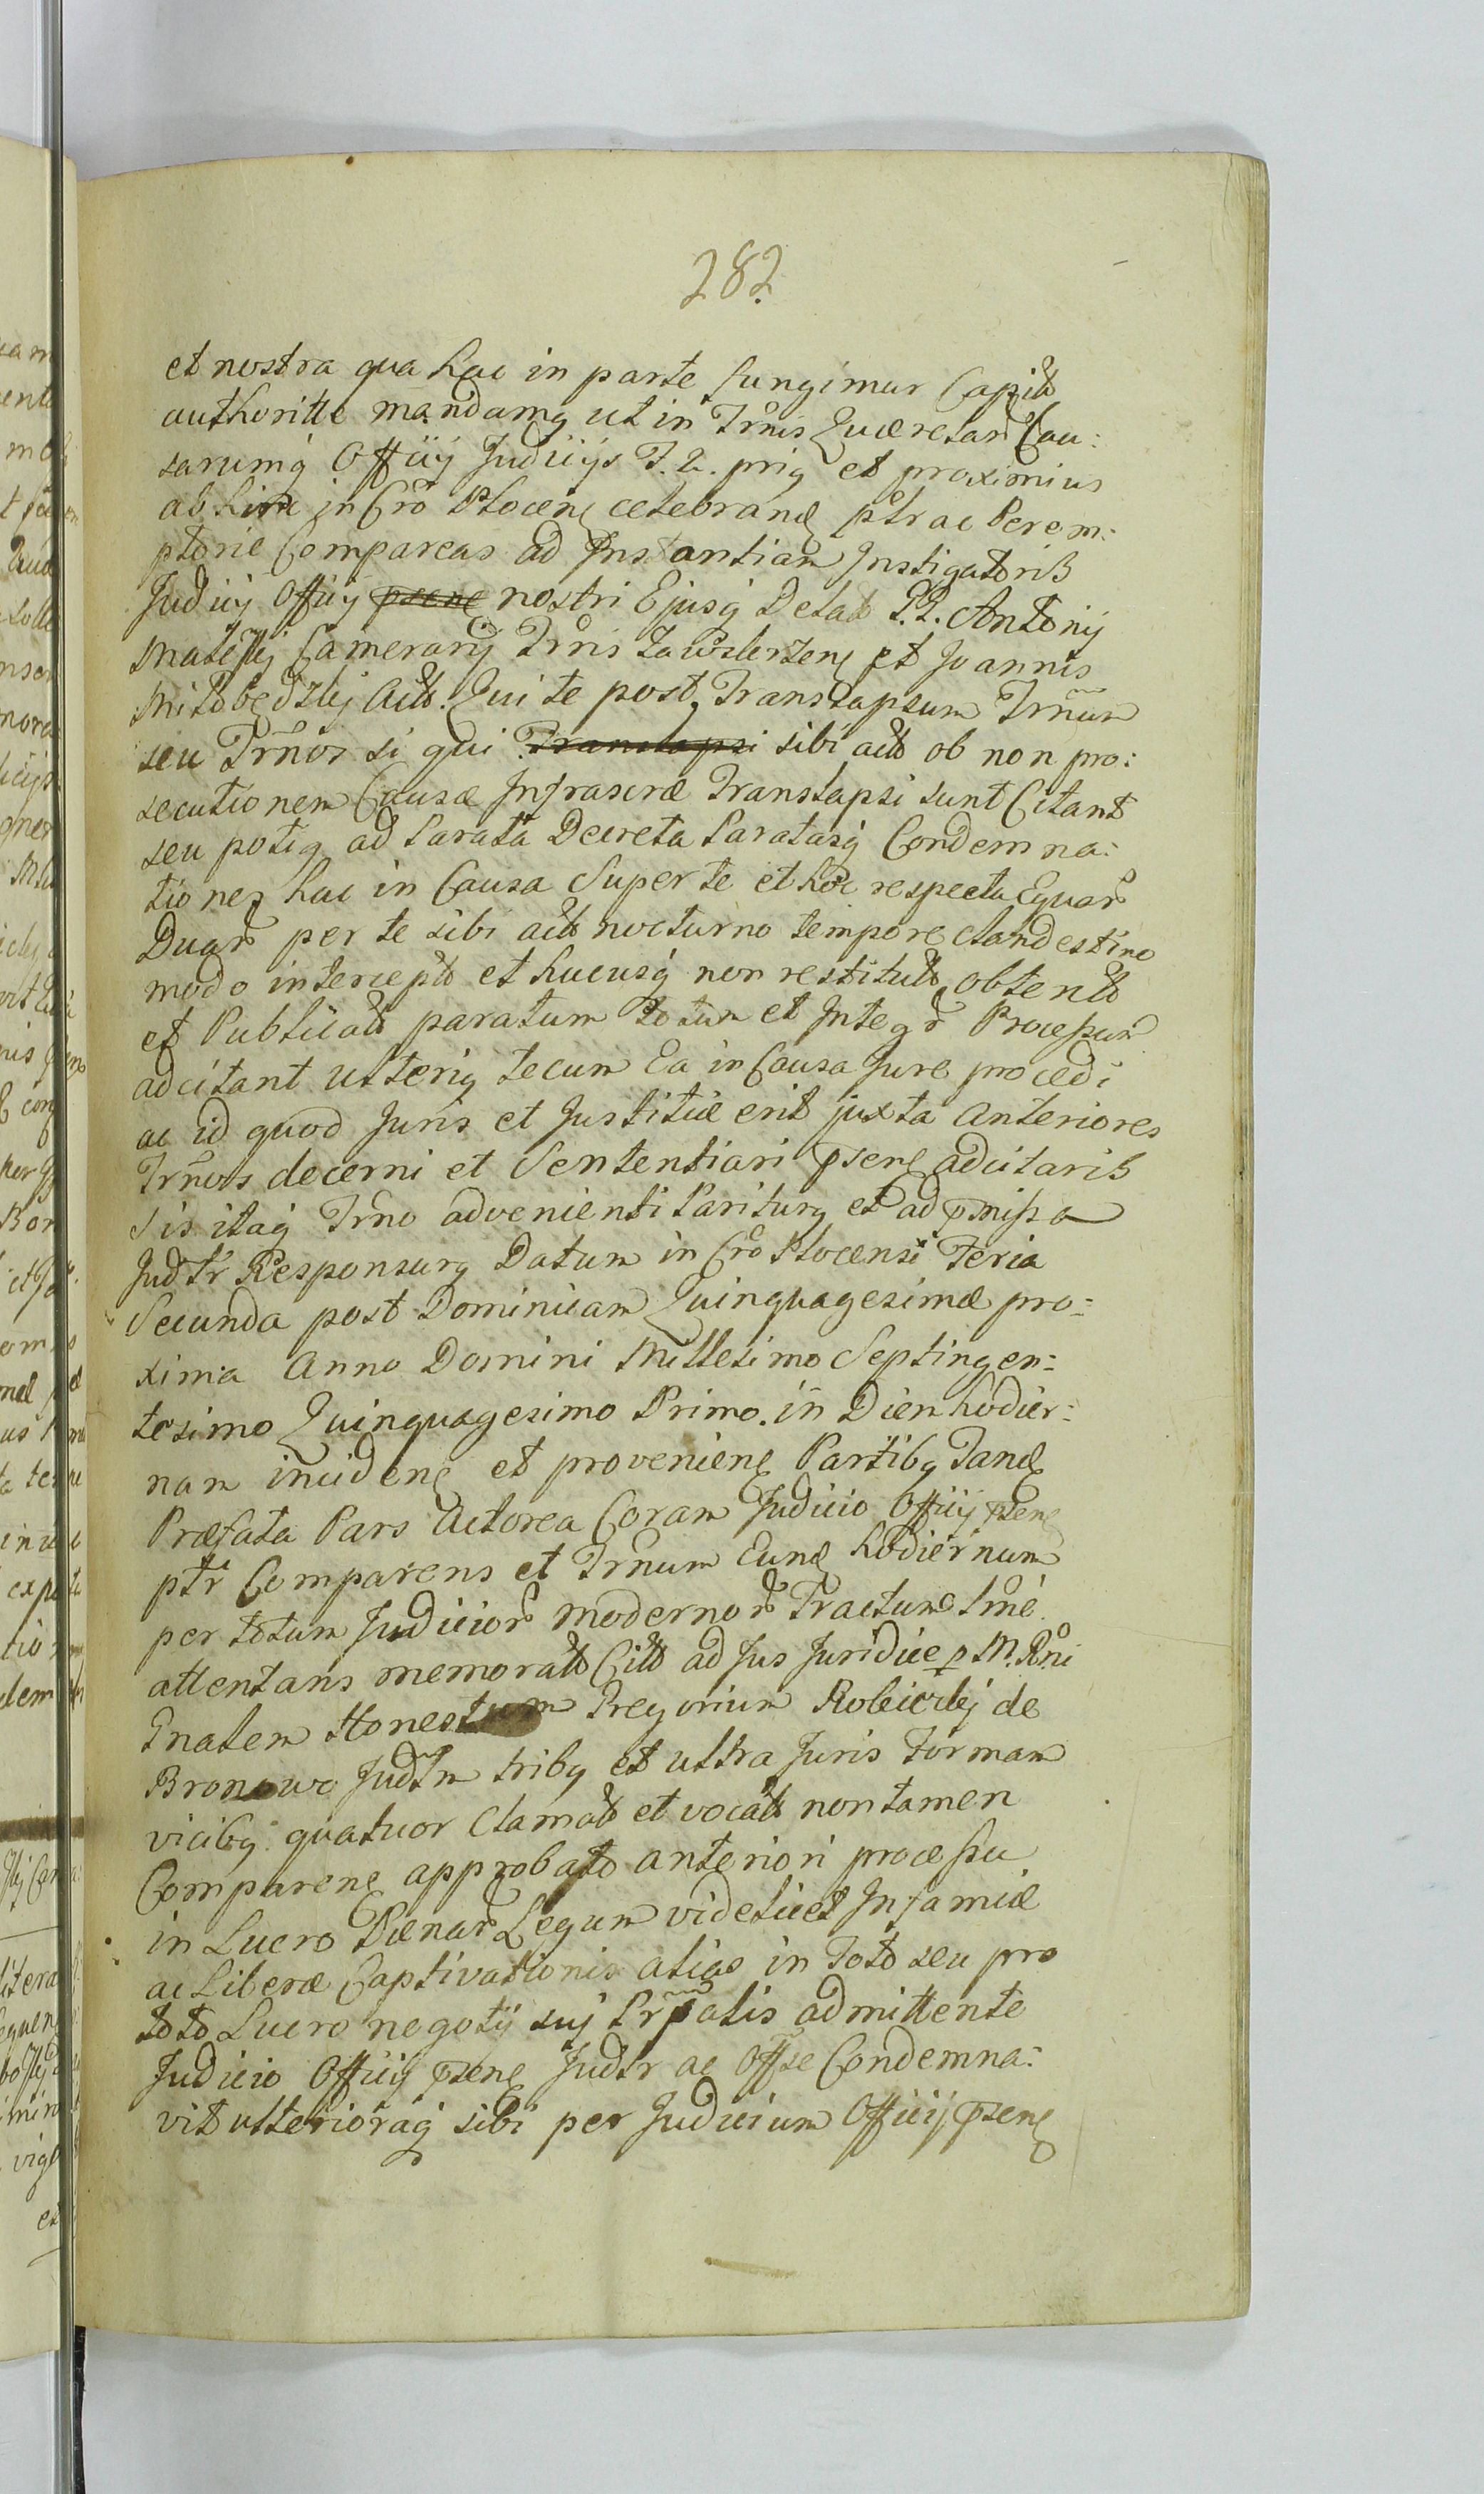 282
et nostra qua hac in parte fungimur Capit
authoritte mandamq ut in Trnis Quæretar Cau:
sarumq Officij Judicijs F. 2. priq et proximius
ab hinc in Cro Plocen celebrand ptr ac Perem:
ptorie Compareas ad Instantiam Instigatoris
Judicij Officij psene nostri Ejusq Delat G.G. Antonij
Camerarij Trnis et Joannis
Act. Qui te post Translapsum Trnum
seu Trnos si qui Translapsi sibi act ob non pro:
secutionem Causæ Infrascræ Translapsi sunt Citant
seu potiq ad Parata Decreta Paratasq Condemna:
tiones hac in Causa Super te et hoc respectu Equar
Duar per te sibi act nocturno tempore clandestino
modo intercept et hucusq non restitut obtent
et Publicat paratum totum et Integr Processum
adcitant ulteriq tecum Ea in Causa Jure procedi
ac id quod Juris et Justitiæ erit juxta anteriores
Trnos decerni et Sententiari psen adcitaris
Sis itaq Trno advenienti Pariturq et ad pmissa
Judtr Responsurq Datum in Cro Plocensi Feria
Secunda post Dominicam Quinquagesimæ pro:
xima Anno Domini Millesimo Septingen:
tesimo Quinquagesimo Primo. in Diem hodier:
nam inciden et provenien Partibq Tand
Præfata Pars Actorea Coram Judicio Officij psen
ptr Comparens et Trnum Eund hodiernum
per totum Judicior modernor Tractum tme
attentans memorat Citt ad Jus Juridice p M. Rni
Gnalem Honestum Gregorium de
Bronowo Judtm tribq et ultra Juris Formam
vicibq quatuor Clamat et vocat non tamen
Comparen approbato anteriori processu
in Lucro Pænar Legum videlicet Infamiæ
ac Liberæ Captivationis alias in Toto seu pro
toto Lucro negotij suj Prpalis admittente
Judicio Officij psen Judtr ac Offse Condemna:
vit ulterioraq sibi per Judicium Officij psen